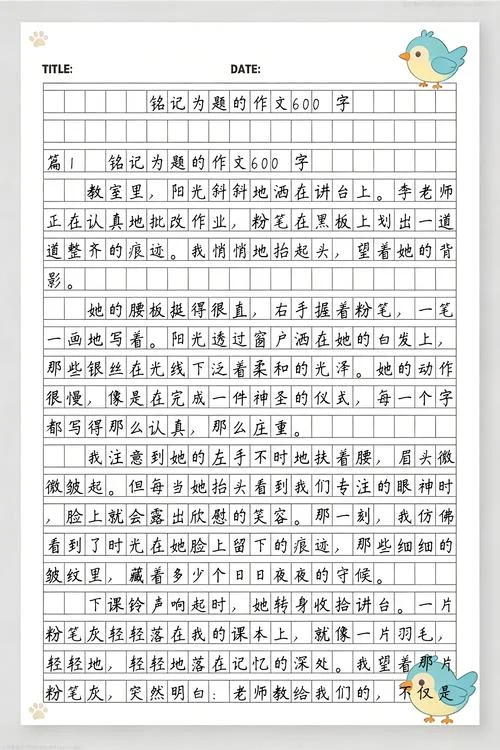 TITLE: DATE:
铭记为题的作文600 字
篇1 铭记为题的作文600 字
教室里，阳光斜斜地洒在讲台上。李老师
正在认真地批改作业，粉笔在黑板上划出一道
道整齐的痕迹。我悄悄地抬起头，望着她的背
影。
她的腰板挺得很直，右手握着粉笔，一笔
一画地写着。阳光透过窗户洒在她的白发上，
那些银丝在光线下泛着柔和的光泽。她的动作
很慢，像是在完成一件神圣的仪式，每一个字
都写得那么认真，那么庄重。
我注意到她的左手不时地扶着腰，眉头微
微皱起。但每当她抬头看到我们专注的眼神时
，脸上就会露出欣慰的笑容。那一刻，我仿佛
看到了时光在她脸上留下的痕迹，那些细细的
皱纹里，藏着多少个日日夜夜的守候。
下课铃声响起时，她转身收拾讲台。一片
粉笔灰轻轻落在我的课本上，就像一片羽毛，
轻轻地，轻轻地落在记忆的深处。我望着那片
粉笔灰，突然明白：老师教给我们的，不仅是